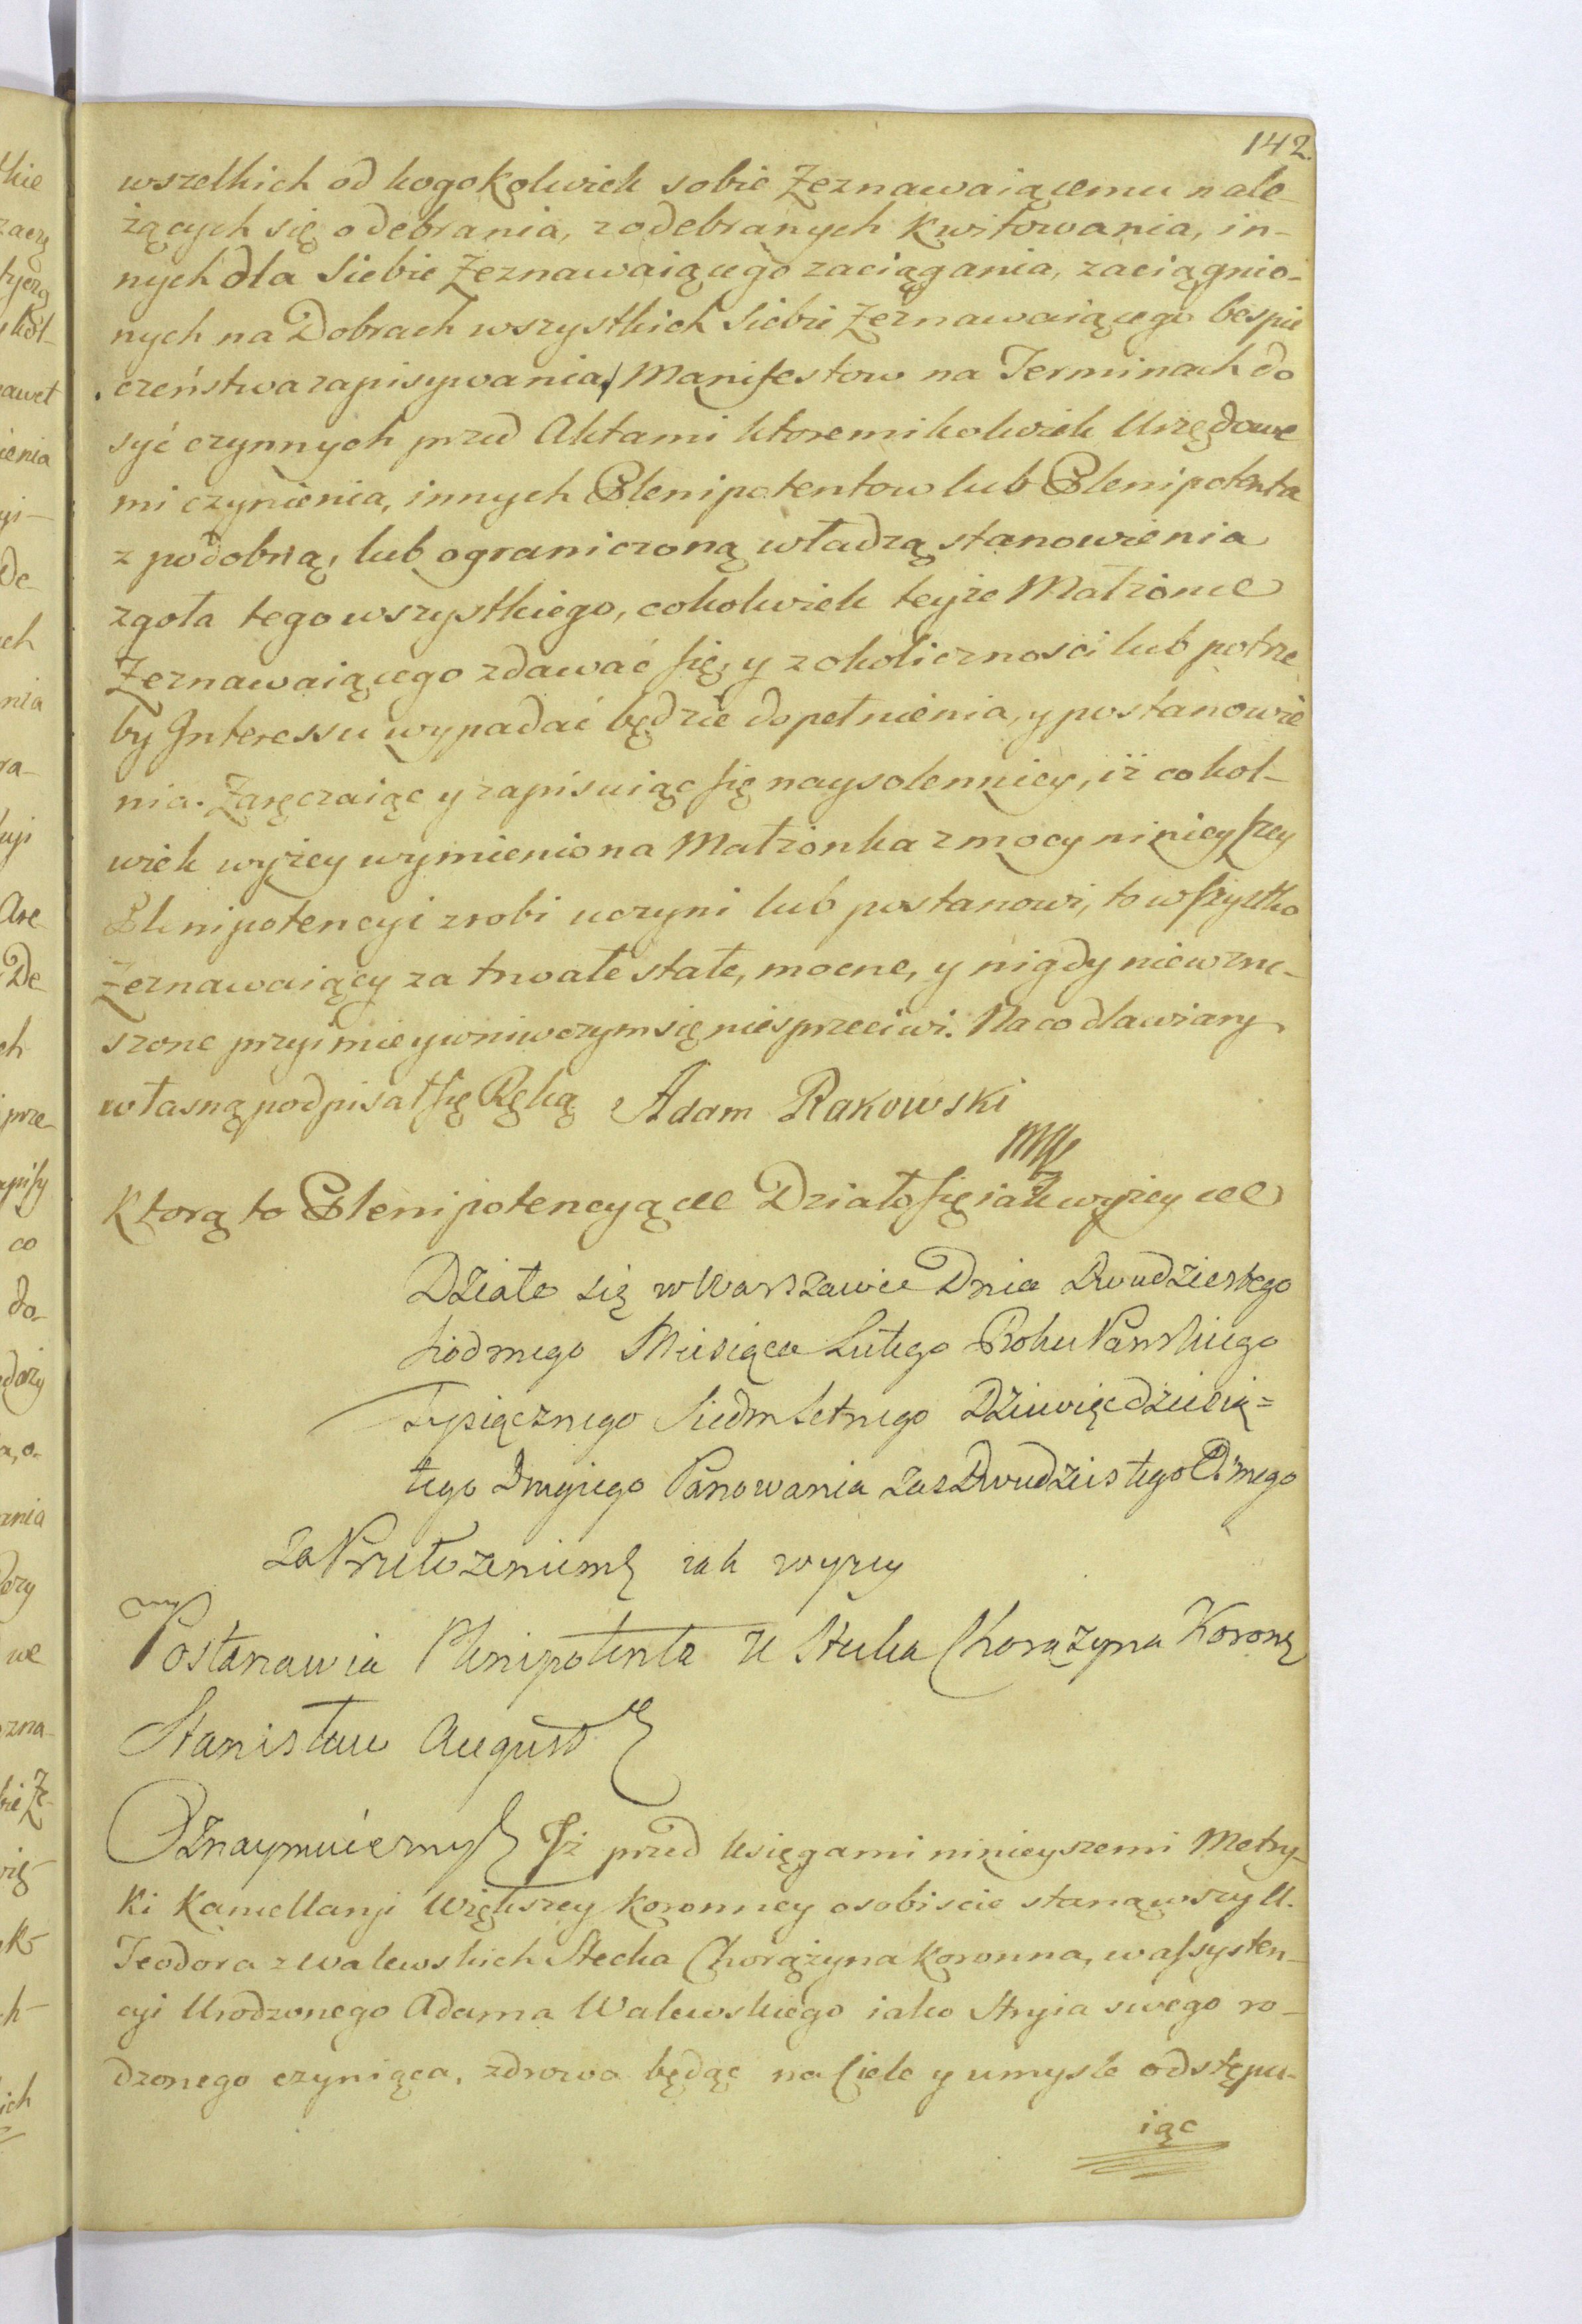 142.
wszelkich od kogokolwiek sobie Zeznawaiącemu nale-
żących się odebrania, z odebranych kwitowania, in-
nych dla Siebie Zeznawaiącego zaciągania, zaciągnio-
nych na Dobrach wszystkich Siebie Zeznawaiącego bespie
czeństwa zapisywania, Manifestow na Terminach do
syć czynnych przed Aktami ktoremikolwiek Urzędowe
mi czynienia, innych Plenipotentow lub Plenipotenta
z podobną, lub ograniczoną władzą stanowienia
zgoła tego wszystkiego, cokolwiek teyże Małżonce
Zeznawaiącego zdawać się, y z okoliczności lub potrze
by Interessu wypadać będzie dopełnienia, y postanowie
nia. Zaręczaiąc y zapisuiąc się naysolenniey, iż cokol-
wiek wyżey wymieniona Małżonka z mocy ninieyszey
Plenipotencyi zrobi uczyni lub postanowi, to wszystko
Zeznawaiący za trwałe stałe, mocne, y nigdy niewzru-
szone przyimie y wniwczym się niesprzeciwi. Na co dla wiary
własną podpisał się Ręką Adam Rakowski
mp
Ktorą to Plenipotencyą etc Działo się iak wyżey etc
Działo się w Warszawie Dnia Dwudziestego
siodmego Miesiąca Lutego Roku Pańskiego
Tysiącznego Siedmsetnego Dziewiędziesią=
tego Drugiego Panowania zaś Dwudziestego Osmego
Za Przełożeniem iak wyżey
Postanawia Plenipotenta U Stecka Chorążyna Koronę
Stanisław August
Oznaymuiemy Iż przed księgami ninieyszemi Metry-
ki Kancellaryi Większey Koronney osobiscie stanąwszy U.
Teodora z Walewskich Stecka Chorążyna Koronna, w assysten-
cyi Urodzonego Adama Walewskiego iako Stryia swego ro-
dzonego czyniąca, zdrowa będąc na Ciele y umysle odstępu-
iąc